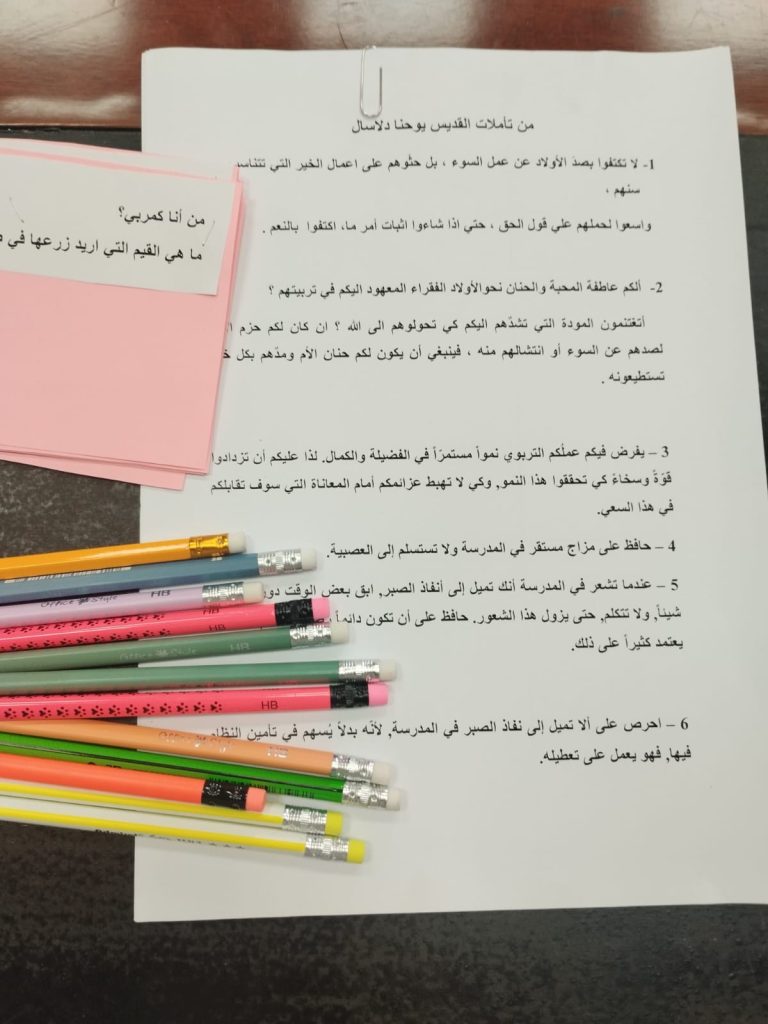 من تأملات القديس يوحنا دلاسال
1- لا تكتفوا بصدّ الأولاد عن عمل السوء ، بل حثّوهم على اعمال الخير التي
سنهم ،
واسعوا لحملهم علي قول الحق ، حتي اذا شاءوا اثبات أمر ما، اكتفوا بالنعم .
2- ألكم عاطفة المحبة والحنان نحوالأولاد الفقراء المعهود اليكم في تربيتهم ؟
أتغتنمون المودة التي تشدّهم اليكم كي تحولوهم الى الله ؟ ان كان لكم حزم
لصدهم عن السوء أو انتشالهم منه ، فينبغي أن يكون لكم حنان الأم ومدّهم بكل
تستطيعونه .
3 – يفرض فيكم عملُكم التربوي نمواً مستمرّاً في الفضيلة والكمال. لذا عليكم أن تزدادوا
قوّةً وسخاءً كي تحققوا هذا النمو, وكي لا تهبط عزائمكم أمام المعاناة التي سوف تقابلكم
في هذا السعي.
4 – حافظ على مزاج مستقر في المدرسة ولا تستسلم إلى العصبية.
5 – عندما تشعر في المدرسة أنك تميل إلى أنفاذ الصبر, ابق بعض الوقت
شيئاً, ولا تتكلم, حتى يزول هذا الشعور. حافظ على أن تكون دائماً
يعتمد كثيراً على ذلك.
6 – احرص على ألا تميل إلى نفاذ الصبر في المدرسة, لأنّه بدلاً يُسهم في تأمين النظام
فيها, فهو يعمل على تعطيله.
من أنا كمربي؟
ما هي القيم التي اريد زرعها في
Office Style HB
HB
Office Style HB
HB
HB